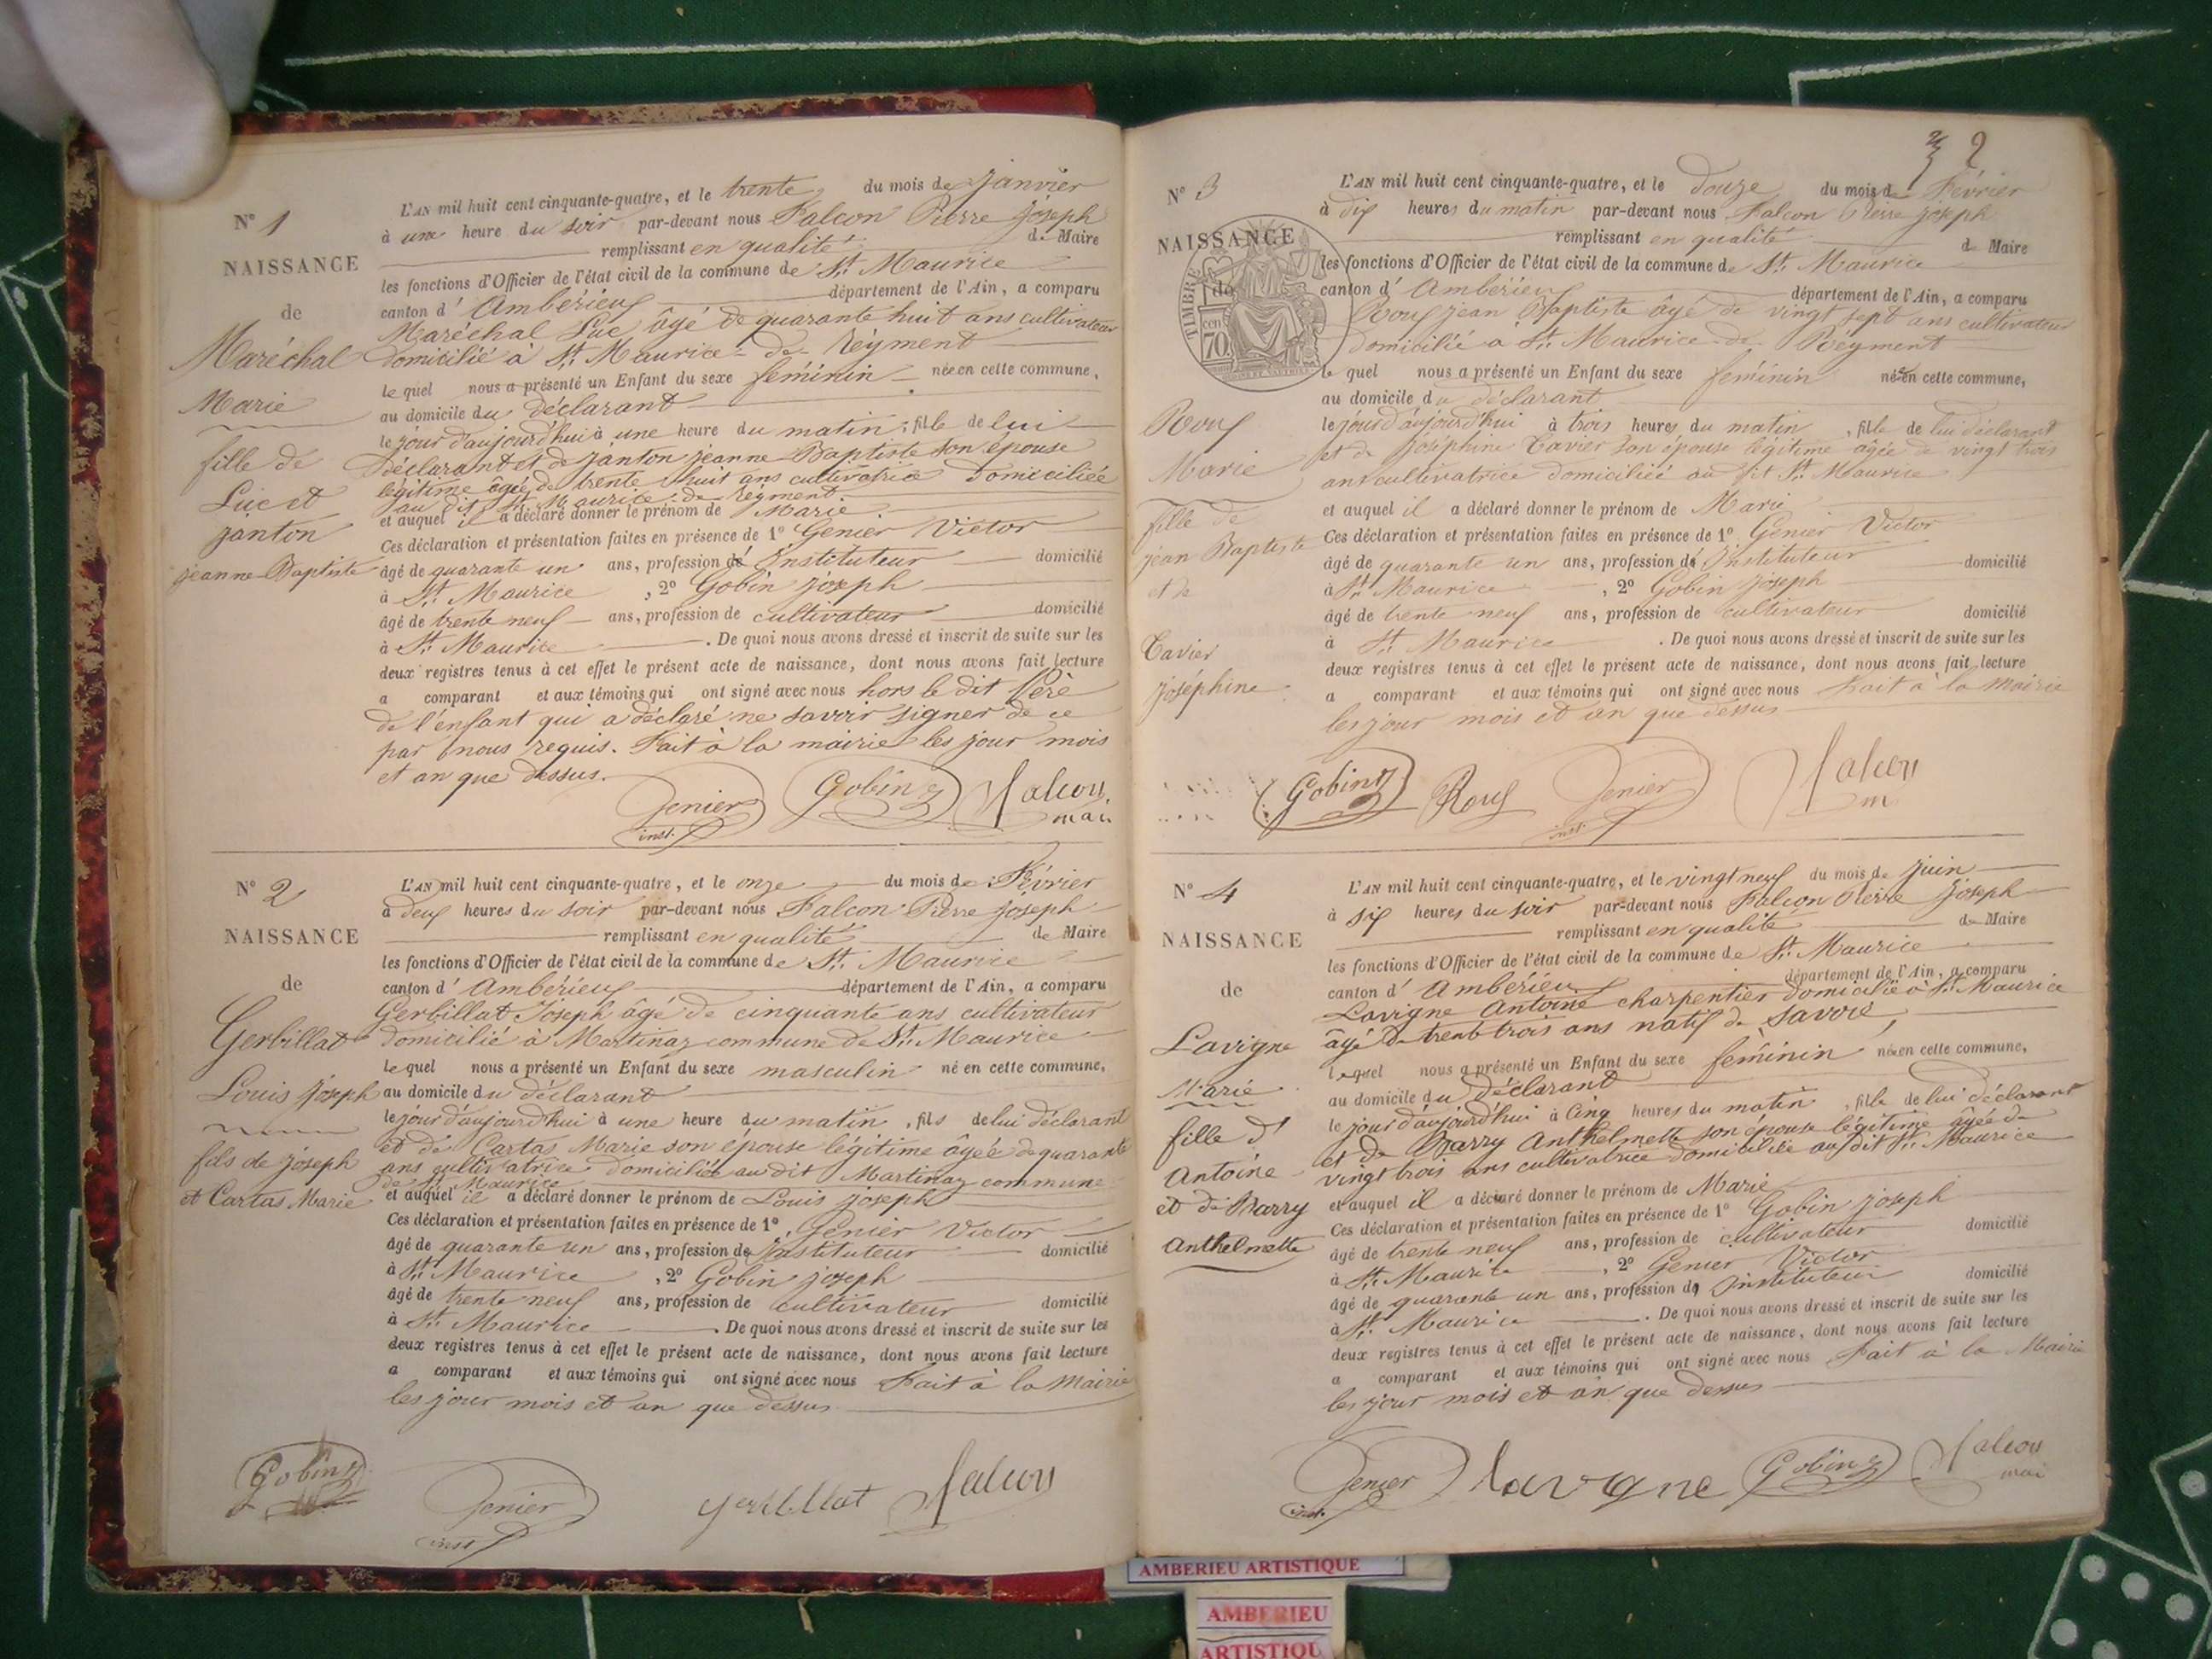 N° 1
NAISSANCE
de
Maréchal
Marie
fille de
Luc et
janton
jeanne-Baptiste
L'AN mil huit cent cinquante-quatre, et le trente du mois de janvier
à une heure du soir par-devant nous Falcon Pierre joseph
remplissant en qualité de Maire
les fonctions d'Officier de l'état civil de la commune de St. Maurice
canton d' Ambérieux département de l'Ain, a comparu
Maréchal Luc âgé de quarante huit ans cultivateur
domicilié à St. Maurice-de-Réyment
lequel nous a présenté un Enfant du sexe féminin née en cette commune,
au domicile du déclarant
le jour d'aujourd'hui à une heure du matin, fille de lui
déclarant et de janton jeanne Baptiste son épouse
légitime âgée de trente huit ans cultivatrice domiciliée
au dit St. Maurice-de-Réyment.
et auquel il a déclaré donner le prénom de Marie
Ces déclaration et présentation faites en présence de 1° Genier Victor
âgé de quarante un ans, profession d' Instituteur domicilié
à St. Maurice, 2° Gobin joseph
âgé de trente neuf ans, profession de cultivateur domicilié
à St. Maurice. De quoi nous avons dressé et inscrit de suite sur les
deux registres tenus à cet effet le présent acte de naissance, dont nous avons fait lecture
a comparant et aux témoins qui ont signé avec nous hors le dit Père
de l'enfant qui a déclaré ne savoir signer de ce
par nous requis. Fait à la mairie les jour mois
et an que dessus.
Genier inst. Gobin Falcon mai
N° 2
NAISSANCE
de
Gerbillat
Louis joseph
fils de joseph
et Cartas Marie
L'AN mil huit cent cinquante-quatre, et le onze du mois de Février
à deux heures du soir par-devant nous Falcon Pierre joseph
remplissant en qualité de Maire
les fonctions d'Officier de l'état civil de la commune de St. Maurice
canton d' Ambérieux département de l'Ain, a comparu
Gerbillat Joseph âgé de cinquante ans cultivateur
domicilié à Martinaz commune de St. Maurice
lequel nous a présenté un Enfant du sexe masculin né en cette commune,
au domicile du déclarant
le jour d'aujourd'hui à une heure du matin, fils de lui déclarant
et de Cartas Marie son épouse légitime âgée de quarante
ans cultivatrice domiciliée au dit Martinaz commune
de St. Maurice
et auquel il a déclaré donner le prénom de Louis joseph
Ces déclaration et présentation faites en présence de 1° Genier Victor
âgé de quarante un ans, profession d' Instituteur domicilié
à St. Maurice, 2° Gobin joseph
âgé de trente neuf ans, profession de cultivateur domicilié
à St. Maurice. De quoi nous avons dressé et inscrit de suite sur les
deux registres tenus à cet effet le présent acte de naissance, dont nous avons fait lecture
a comparant et aux témoins qui ont signé avec nous Fait à la Mairie
les jour mois et an que dessus
Gobin Genier inst gerbillat Falcon
2
N° 3
NAISSANCE
de
TIMBRE
cen 70
Roux
Marie
fille de
jean Baptiste
et de
Cavier
joséphine
L'AN mil huit cent cinquante-quatre, et le douze du mois de Février
à dix heures du matin par-devant nous Falcon Pierre joseph
remplissant en qualité de Maire
les fonctions d'Officier de l'état civil de la commune de St. Maurice
canton d' Ambérieux département de l'Ain, a comparu
Roux jean Baptiste âgé de vingt sept ans cultivateur
domicilié à St. Maurice-de-Réyment
lequel nous a présenté un Enfant du sexe féminin née en cette commune,
au domicile du déclarant
le jour d'aujourd'hui à trois heures du matin, fille de lui déclarant
et de joséphine Cavier son épouse légitime âgée de vingt trois
ans cultivatrice domiciliée au dit St. Maurice
et auquel il a déclaré donner le prénom de Marie
Ces déclaration et présentation faites en présence de 1° Genier Victor
âgé de quarante un ans, profession d' Instituteur domicilié
à St. Maurice, 2° Gobin joseph
âgé de trente neuf ans, profession de cultivateur domicilié
à St. Maurice. De quoi nous avons dressé et inscrit de suite sur les
deux registres tenus à cet effet le présent acte de naissance, dont nous avons fait lecture
a comparant et aux témoins qui ont signé avec nous Fait à la Mairie
les jour mois et an que dessus
Gobin Roux Genier inst. Falcon m
N° 4
NAISSANCE
de
Lavigne
Marie
fille d'
Antoine
et de Barry
Anthelmette
L'AN mil huit cent cinquante-quatre, et le vingt neuf du mois de juin
à six heures du soir par-devant nous Falcon Pierre joseph
remplissant en qualité de Maire
les fonctions d'Officier de l'état civil de la commune de St. Maurice
canton d' Ambérieux département de l'Ain, a comparu
Lavigne Antoine charpentier domicilié à St. Maurice
âgé de trente trois ans natif de Savoie,
lequel nous a présenté un Enfant du sexe féminin née en cette commune,
au domicile du déclarant
le jour d'aujourd'hui à cinq heures du matin, fille de lui déclarant
et de Barry Anthelmette son épouse légitime âgée de
vingt trois ans cultivatrice domiciliée au dit St. Maurice
et auquel il a déclaré donner le prénom de Marie
Ces déclaration et présentation faites en présence de 1° Gobin joseph
âgé de trente neuf ans, profession de cultivateur domicilié
à St. Maurice, 2° Genier Victor
âgé de quarante un ans, profession d' instituteur domicilié
à St. Maurice. De quoi nous avons dressé et inscrit de suite sur les
deux registres tenus à cet effet le présent acte de naissance, dont nous avons fait lecture
a comparant et aux témoins qui ont signé avec nous Fait à la Mairie
les jour mois et an que dessus
Genier inst. lavigne Gobin Falcon mai
AMBERIEU ARTISTIQUE
AMBERIEU
ARTISTIQU